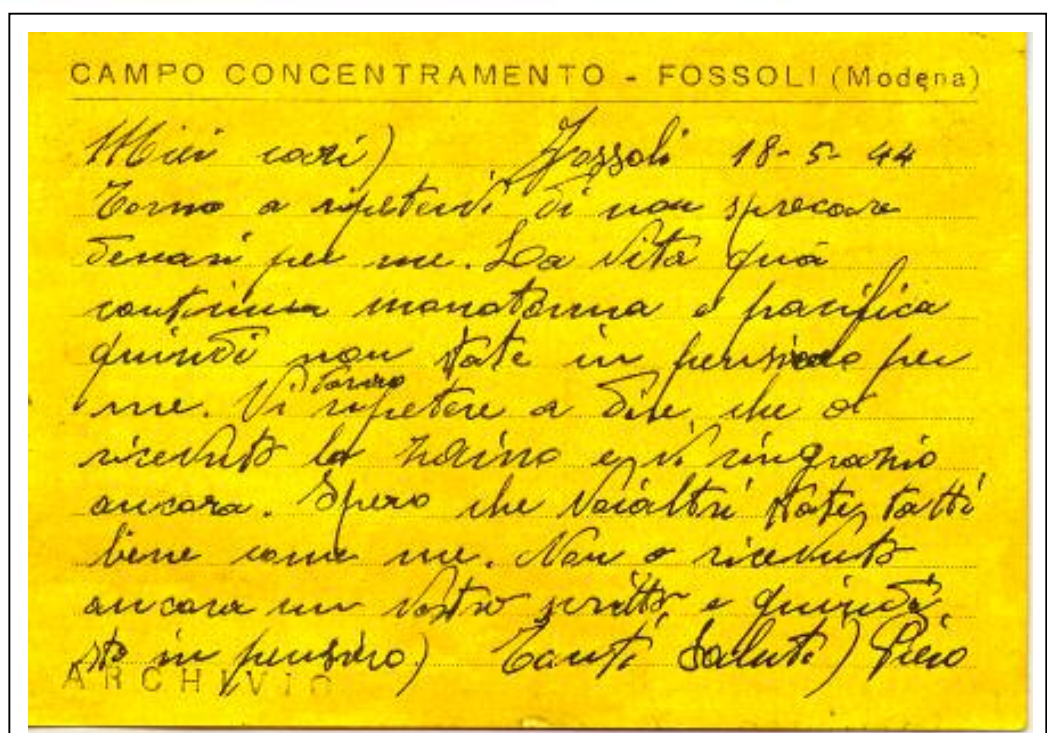 CAMPO CONCENTRAMENTO - FOSSOLI (Modena)
Miei cari) Fossoli 18-5-44
Torno a ripetervi di non sprecare
denari per me. La vita quà
continua monotonna e pacifica
quindi non state in pensiero per
me. Vi torno ripetere a dire che o
ricevuto lo zaino e vi ringrazio
ancora. Spero che voialtri state tutti
bene come me. Non o ricevuto
ancora un vostro scritto e quindi
sto in pensiero) Tanti Saluti) Piero
ARCHIVIO